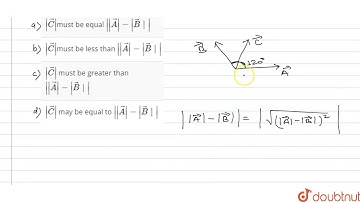 a) |C⃗| must be equal ||A⃗| − |B⃗||
b) |C⃗| must be less than ||A⃗| − |B⃗||
c) |C⃗| must be greater than
||A⃗| − |B⃗||
d) |C⃗| may be equal to ||A⃗| − |B⃗||
B⃗
C⃗
120°
A⃗
||A⃗| − |B⃗|| = |√(|A⃗| − |B⃗|)²|
doubtnut